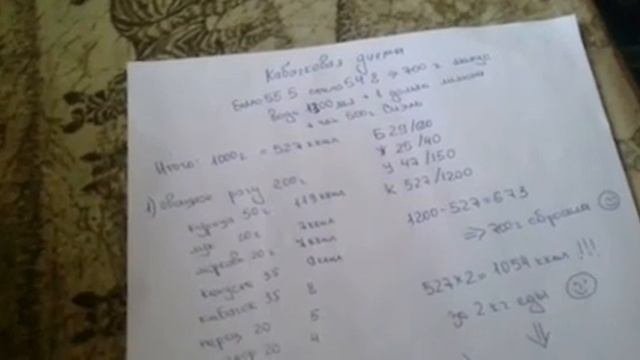 Кабачковая диета
Было 55.5 стало 54.8 => 700 г минус
Вода 1300 мл + 1 долька лимона
+ чай 500г
Итого: 1000г = 527 ккал
Б 29/80
Ж 25/40
У 47/150
К 527/1200
1) овощное рагу 200г
курица 50г 119 ккал
лук 20г 7 ккал
морковь 20г 7 ккал
капуста 35 9 ккал
кабачок 35 8
перец 20 5
20 4
1200-527=673
=> 700г сбросила
527×2=1054 ккал !!!
за 2 кг еды